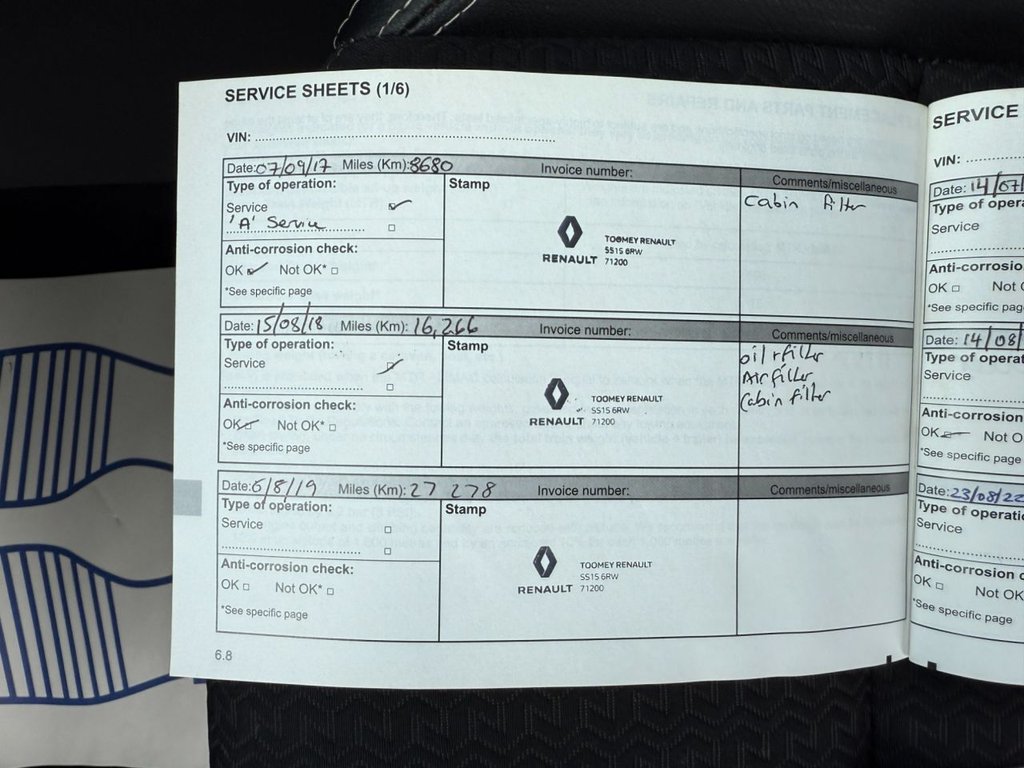 SERVICE SHEETS (1/6)
VIN:
Date: 07/09/17 Miles (Km): 8680 Invoice number: Comments/miscellaneous
Type of operation: Stamp
Service
'A' Service
Cabin filter
RENAULT
TOOMEY RENAULT
SS15 6RW
71200
Anti-corrosion check:
OK Not OK*
*See specific page
Date: 15/08/18 Miles (Km): 16,266 Invoice number: Comments/miscellaneous
Type of operation: Stamp
Service
oil + filter
Air filter
Cabin filter
RENAULT
TOOMEY RENAULT
SS15 6RW
71200
Anti-corrosion check:
OK Not OK*
*See specific page
Date: 6/8/19 Miles (Km): 27 278 Invoice number: Comments/miscellaneous
Type of operation: Stamp
Service
RENAULT
TOOMEY RENAULT
SS15 6RW
71200
Anti-corrosion check:
OK Not OK*
*See specific page
6.8
SERVICE
VIN:
Date: 14/07/
Type of opera
Service
Anti-corrosio
OK Not
*See specific pag
Date: 14/08/
Type of operat
Service
Anti-corrosion
OK Not O
*See specific page
Date: 23/08/22
Type of operati
Service
Anti-corrosion c
OK Not OK
*See specific page